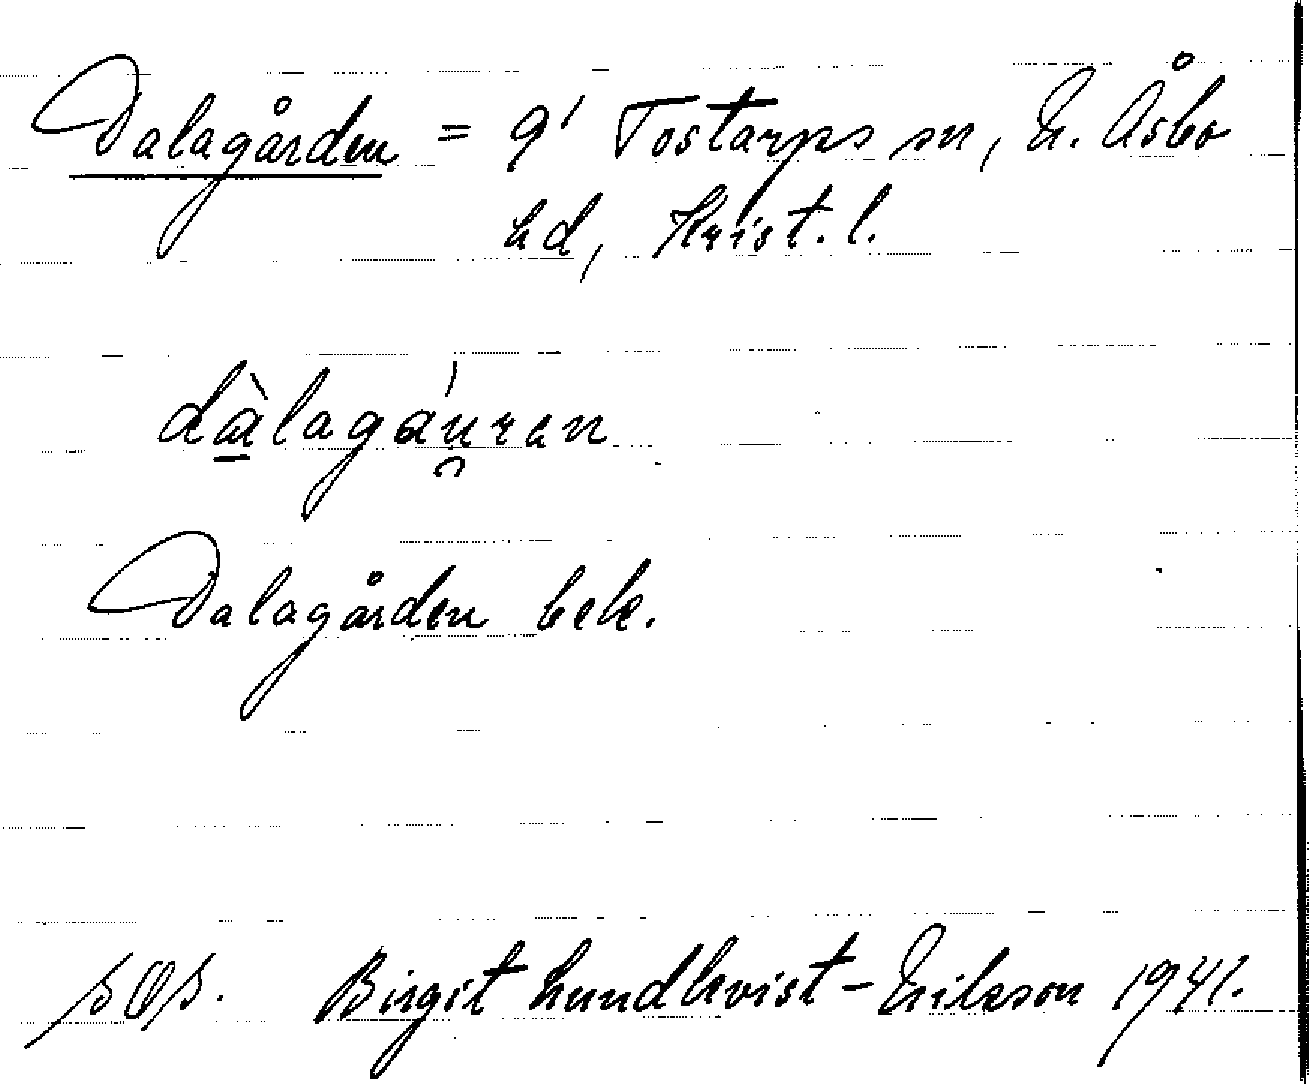 Dalagården = g' Tostarps sn, N. Åsbo
hd, Krist. l.
dàlagáu̯ran
Dalagården bek.
Birgit Lundkvist-Eriksson 1941.